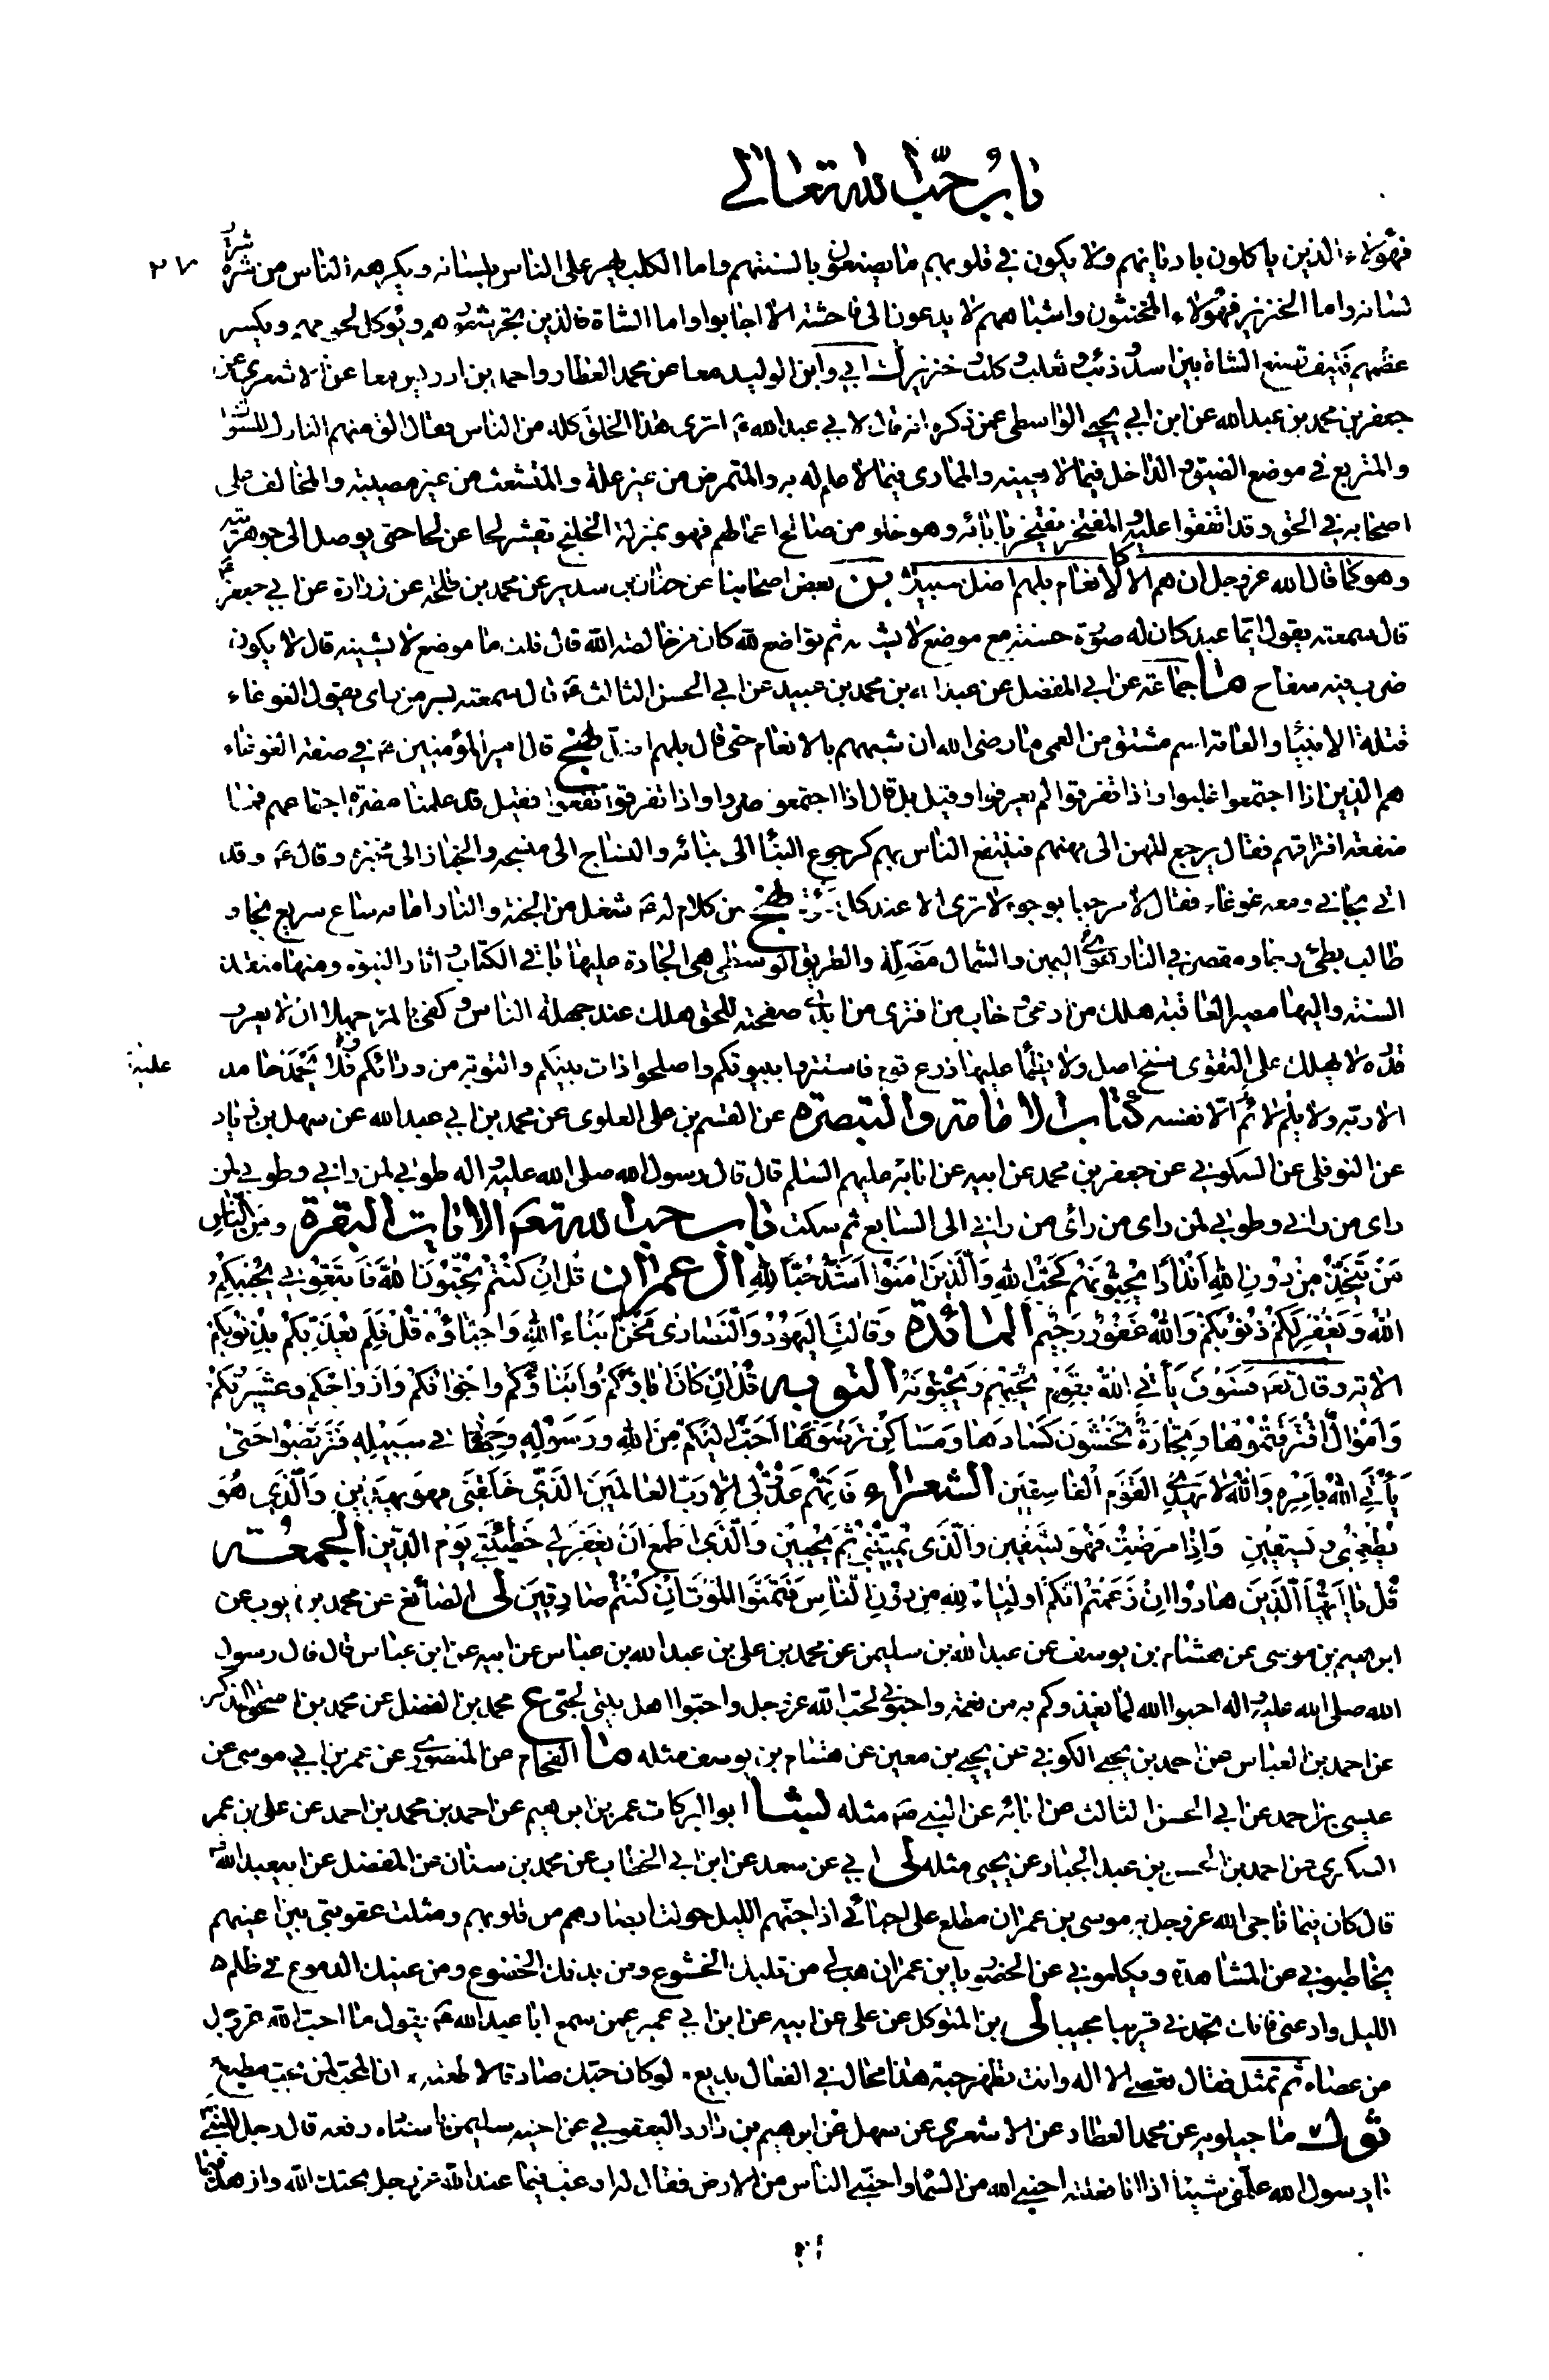 باب حبّ الله تعالى
فهؤلاء الذين ياكلون باديانهم ولا يكون في قلوبهم ما يصفون بالسنتهم واما الكلب يهر على الناس بلسانه ويكرهه الناس من شرّة
٢٧
لسانه واما الخنزير فهؤلاء المخنثون واشباههم لا يدعون الى فاحشة الا اجابوا واما الشاة فالذين تجز شعورهم ويؤكل لحومهم ويكسر
عظمهم فكيف تصنع الشاة بين اسد وذئب وثعلب وكلب وخنزير ل ابي وابن الوليد معا عن محمد العطار واحمد بن ادريس معا عن الاشعري عن
جعفر بن محمد بن عبد الله عن ابن ابي يحيى الواسطي عمن ذكره انه قال لابي عبد الله ع اترى هذا الخلق كله من الناس فقال الق منهم التارك للسّواك
والمتربع في موضع الضيق والداخل فيما لا يعنيه والمماري فيما لا علم له به والمتمرض من غير علة والمتشعث من غير مصيبة والمخالف على
اصحابه في الحق وقد اتفقوا عليه والمفتخر يفتخر بابائه وهو خلو من صالح اعمالهم فهو بمنزلة الخلنج يقشر لحا عن لحا حتى يوصل الى جوهريته
وهو كما قال الله عز وجل ان هم الا كالانعام بل هم اضل سبيلا ين بعض اصحابنا عن حنان بن سدير عن محمد بن طلحة عن زرارة عن ابي جعفر ع
قال سمعته يقول ايما عبد كان له صورة حسنة مع موضع لا يشينه ثم تواضع لله كان من خالصة الله قال قلت ما موضع لا يشينه قال لا يكون
ضرب فيه سفاح ما جماعة عن ابي المفضل عن عبد الله بن محمد بن عبيد عن ابي الحسن الثالث ع قال سمعته بسر من راى يقول الغوغاء
قتلة الانبياء والعامة اسم مشتق من العمى ما رضى الله ان شبههم بالانعام حتى قال بل هم اضل نهج قال امير المؤمنين ع في صفة الغوغاء
هم الذين اذا اجتمعوا غلبوا واذا تفرقوا لم يعرفوا وقيل بل قال اذا اجتمعوا ضروا واذا تفرقوا نفعوا فقيل قد علمنا مضرة اجتماعهم فما
منفعة افتراقهم فقال يرجع المهن الى مهنهم فينتفع الناس بهم كرجوع البنّا الى بنائه والنساج الى منسجه والخباز الى مخبزه وقال ع وقد
اتي بجاني ومعه غوغاء فقال لا مرحبا بوجوه لا ترى الا عند كل سوءة نهج من كلام له ع شغل من الجنة والنار امامه ساع سريع نجا و
طالب بطئ رجا ومقصر في النار هوى اليمين والشمال مضلة والطريق الوسطى هي الجادة عليها باقي الكتاب واثار النبوة ومنها منفذ
السنة واليها مصير العاقبة هلك من ادعى وخاب من افترى من ابدى صفحته للحق هلك عند جهلة الناس وكفى بالمرء جهلا ان لا يعرف
قدره لا يهلك على التقوى سنخ اصل ولا يظمأ عليها زرع قوم فاستتروا ببيوتكم واصلحوا ذات بينكم والتوبة من ورائكم ولا يحمد حامد
الا ربه ولا يلم لائم الا نفسه كتاب الامامة والتبصرة عن القسم بن علي العلوي عن محمد بن ابي عبد الله عن سهل بن زياد
عن النوفلي عن السكوني عن جعفر بن محمد عن ابيه عن ابائه عليهم السلم قال قال رسول الله صلى الله عليه واله طوبى لمن راني وطوبى لمن
راى من راني وطوبى لمن راى من راى من راني الى السابع ثم سكت باب حب الله تعم الايات البقرة ومن الناس
من يتخذ من دون الله اندادا يحبونهم كحب الله والذين امنوا اشد حبا لله ال عمران قل ان كنتم تحبون الله فاتبعوني يحببكم
الله ويغفر لكم ذنوبكم والله غفور رحيم المائدة وقالت اليهود والنصارى نحن ابناء الله واحباؤه قل فلم يعذبكم بذنوبكم
الاية وقال تعم فسوف ياتي الله بقوم يحبهم ويحبونه التوبه قل ان كان اباؤكم وابناؤكم واخوانكم وازواجكم وعشيرتكم
واموال اقترفتموها وتجارة تخشون كسادها ومساكن ترضونها احب اليكم من الله ورسوله وجهاد في سبيله فتربصوا حتى
ياتي الله بامره والله لا يهدي القوم الفاسقين الشعراء فانهم عدو لي الا رب العالمين الذي خلقني فهو يهدين والذي هو
يطعمني ويسقين واذا مرضت فهو يشفين والذي يميتني ثم يحيين والذي اطمع ان يغفر لي خطيئتي يوم الدين الجمعة
قل يا ايها الذين هادوا ان زعمتم انكم اولياء لله من دون الناس فتمنوا الموت ان كنتم صادقين لى الصائغ عن محمد بن ايوب عن
ابرهيم بن موسى عن هشام بن يوسف عن عبد الله بن سليمن عن محمد بن علي بن عبد الله بن عباس عن ابيه عن ابن عباس قال قال رسول
الله صلى الله عليه واله احبوا الله لما يغذوكم به من نعمة واحبوني لحب الله عز وجل واحبوا اهل بيتي لحبي ع محمد بن الفضل عن محمد بن اسحق المذكر
عن احمد بن العباس عن احمد بن يحيى الكوفي عن يحيى بن معين عن هشام بن يوسف مثله ما الفحام عن المنصوري عن عمر بن ابي موسى عن
عيسى بن احمد عن ابي الحسن الثالث عن ابائه عن النبي ص مثله بشا ابو البركات عمر بن ابرهيم عن احمد بن محمد بن احمد عن علي بن عمر
السكري عن احمد بن الحسن بن عبد الجبار عن يحيى مثله لى ابي عن سعد عن ابن ابي الخطاب عن محمد بن سنان عن المفضل عن ابيعبد الله ع
قال كان فيما ناجى الله عز وجل به موسى بن عمران مطلع على احبائي اذا جنهم الليل حولت ابصارهم من قلوبهم ومثلت عقوبتي بين اعينهم
يخاطبوني عن المشاهدة ويكلموني عن الحضور يا بن عمران هب لي من قلبك الخشوع ومن بدنك الخضوع ومن عينيك الدموع في ظلم
الليل وادعني فانك تجدني قريبا مجيبا لى بن المتوكل عن علي عن ابيه عن ابن ابي عمير عمن سمع ابا عبد الله ع يقول ما احب الله عز وجل
من عصاه ثم تمثل فقال تعصي الاله وانت تظهر حبه هذا محال في الفعال بديع لو كان حبك صادقا لاطعته ان المحب لمن يحب مطيع
ثو ل ماجيلويه عن محمد العطار عن الاشعري عن سهل عن ابرهيم بن داود اليعقوبي عن اخيه سليمن باسناده رفعه قال رجل للنبي ص
يا رسول الله علمني شيئا اذا انا فعلته احبني الله من السماء واحبني الناس من الارض فقال له ارغب فيما عند الله عز وجل يحبك الله وازهد فيما